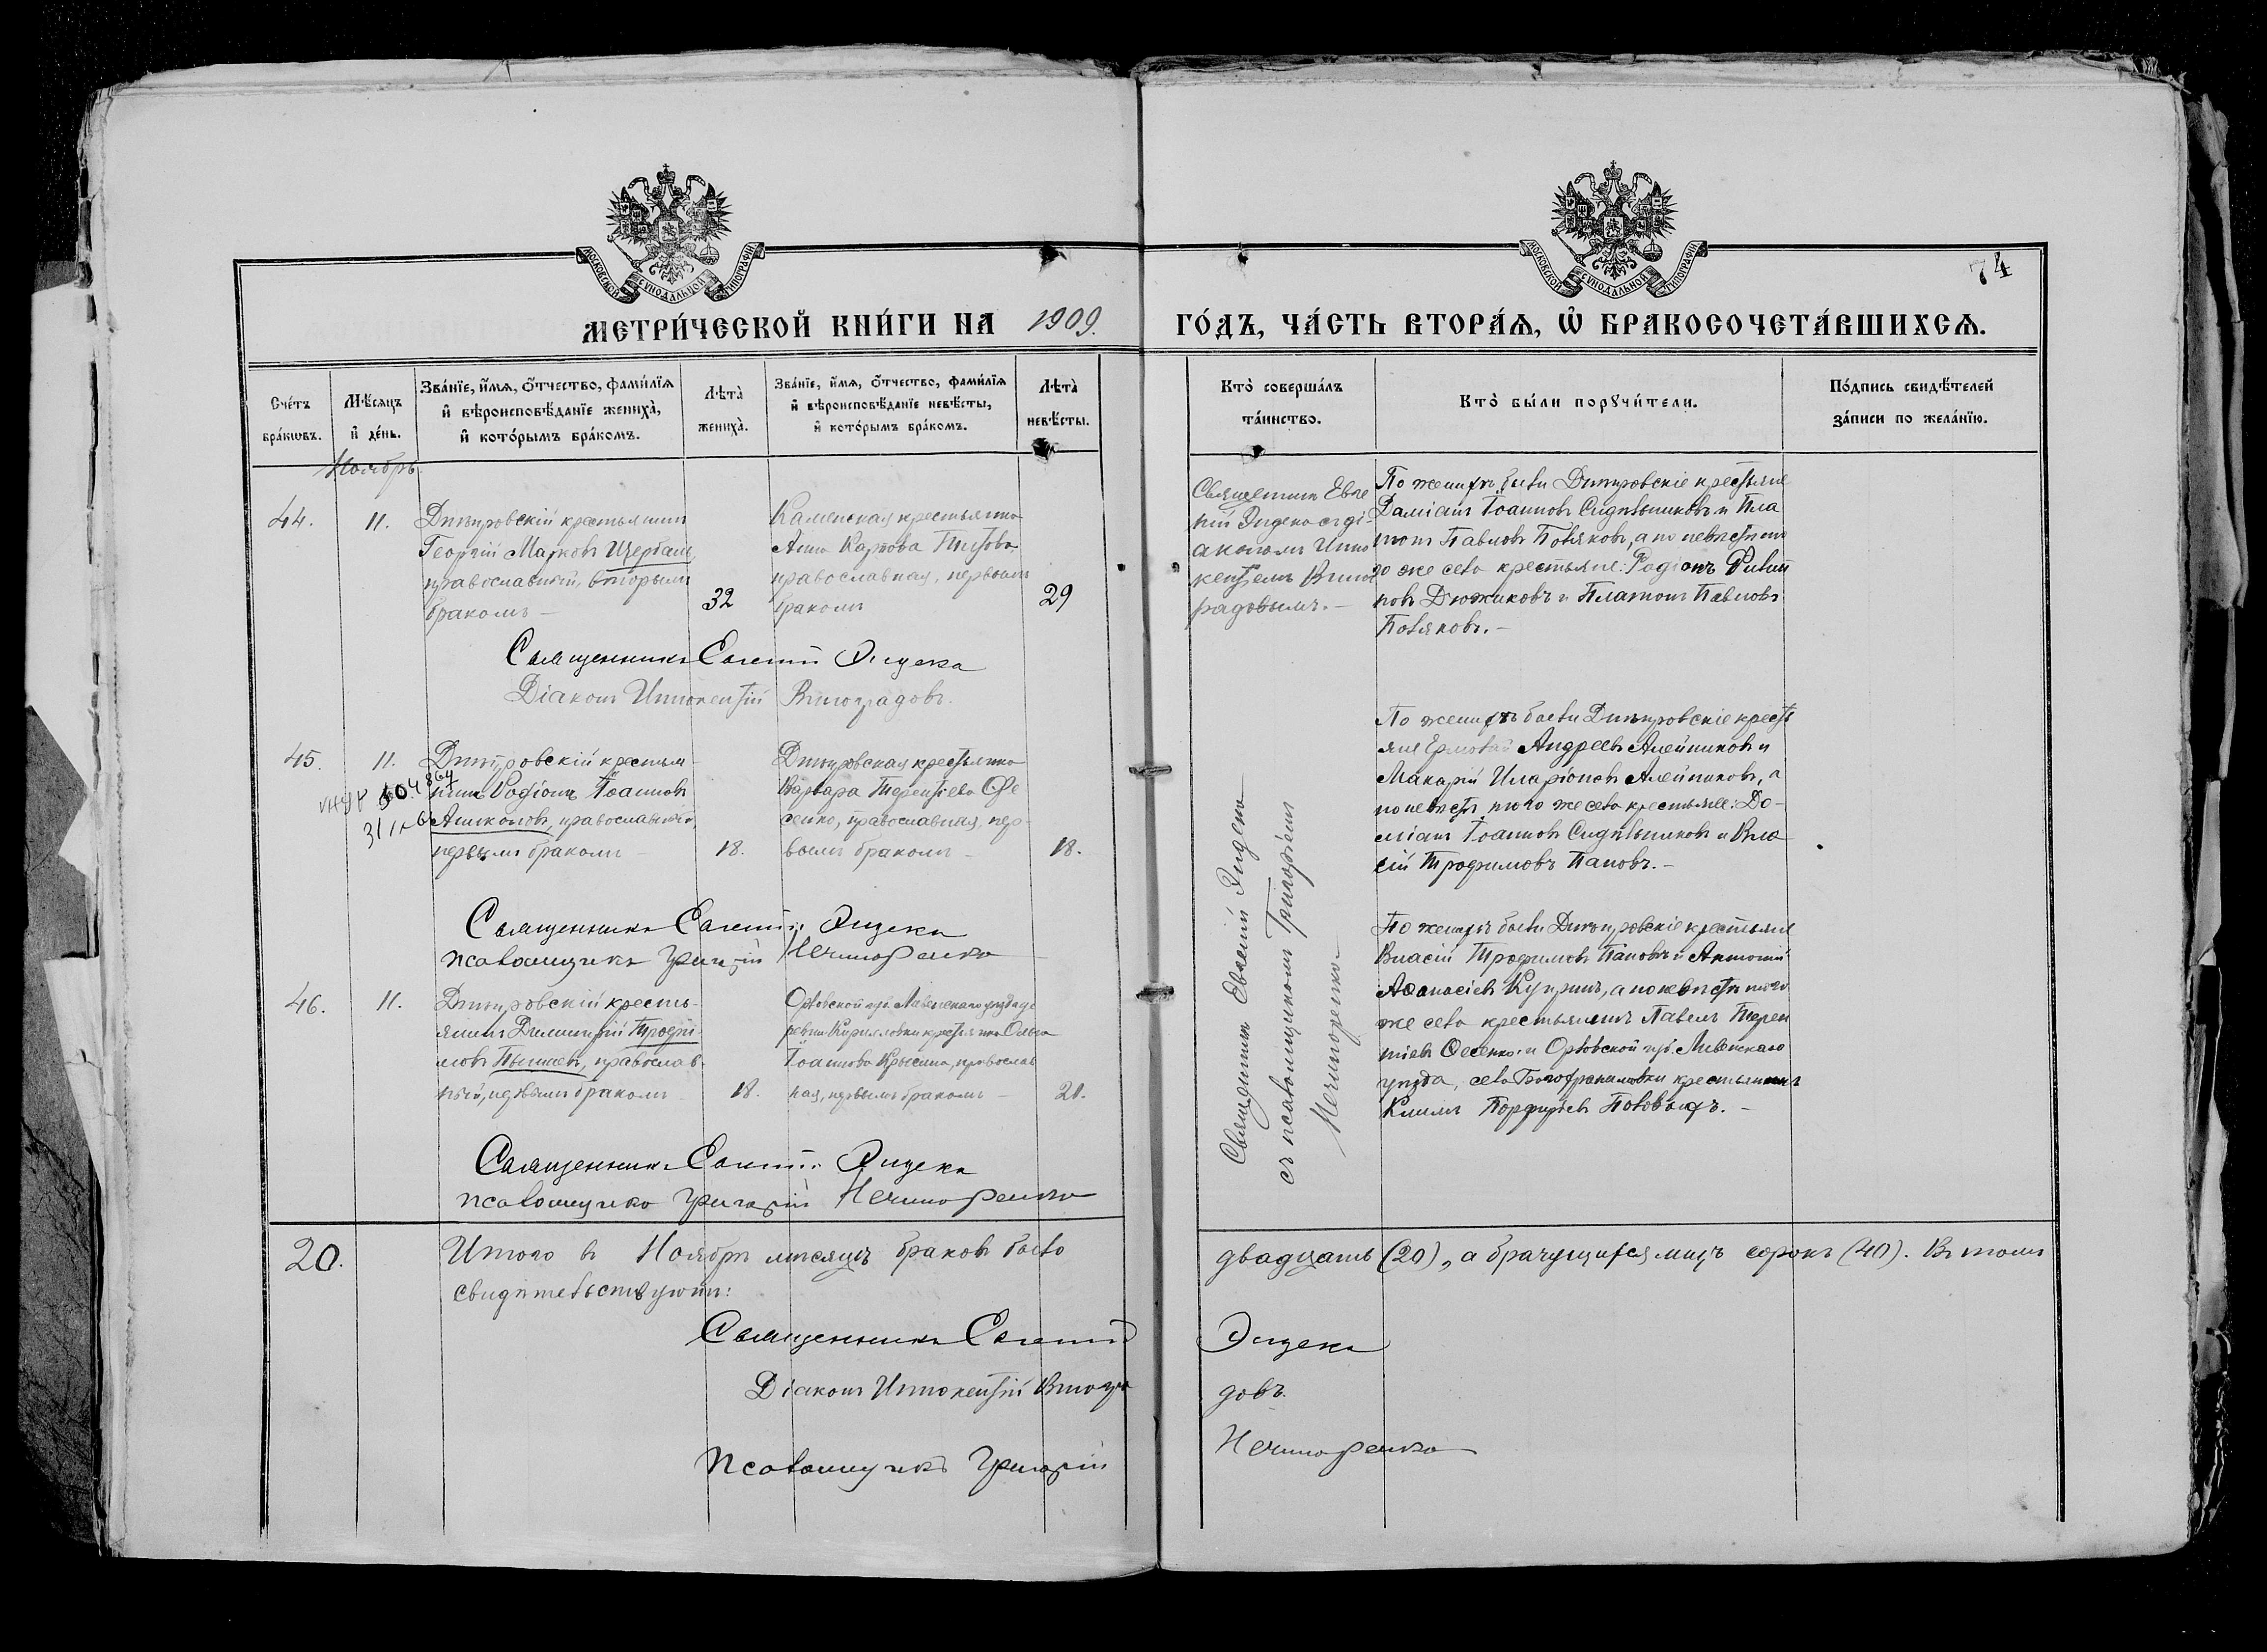 74
МОСКОВСКОЙ СѴНОДАЛЬНОЙ ТИПОГРАФІИ
МОСКОВСКОЙ СѴНОДАЛЬНОЙ ТИПОГРАФІИ
МЕТРИ́ЧЕСКОЙ КНИ́ГИ НА 1909. ГО́ДЪ, ЧА́СТЬ ВТОРА́Ѧ, Ѽ БРАКОСОЧЕТА́ВШИХСѦ.
Сче́тъ
бра́кѡвъ.
Мѣ́сяцъ
и҆ де́нь.
Зва́нїе, и҆́мѧ, ѻ҆́тчество, фами́лїѧ
и҆ вѣроисповѣ́данїе жениха̀,
и҆ кото́рымъ бра́комъ.
Лѣта̀
жениха̀.
Зва́нїе, и҆́мѧ, ѻ҆́тчество, фами́лїѧ
и҆ вѣроисповѣ́данїе невѣ́сты,
и҆ кото́рымъ бра́комъ.
Лѣта̀
невѣ́сты.
Кто̀ соверша́лъ
та́инство.
Кто̀ бы́ли порꙋчи́тели.
По́дпись свидѣ́телей
за́писи по жела́нїю.
Ноябрь.
44.
11.
Дмитровскій крестьянинъ
Георгій Марковъ Щербаш
православный, вторымъ
бракомъ —
32
Каменская крестьянка
Анна Карпова Титова
православная, первымъ
бракомъ
29
Священникъ Евге
ній Эидека съ ді-
акономъ Инно
кентіемъ Виног
радовымъ. —
По женихѣ были Дмитровскіе крестьяне
Даміанъ Іоанновъ Сидѣльниковъ и Пла
тонъ Павловъ Поляковъ, а по невѣстѣ то
го же села крестьяне: Родіонъ Филип
повъ Дюжиковъ и Платонъ Павловъ
Поляковъ. —
Священникъ Евгеній Эидека
Діаконъ Иннокентій Виноградовъ.
45.
11.
Дмитровскій крестья-
нинъ Родіонъ Іоанновъ
православный,
первымъ бракомъ —
18.
Дмитровская крестьянка
Варвара Терентіева Ѳе
сенко, православная, пер-
вымъ бракомъ —
18.
По женихѣ были Дмитровскіе крестъ
яне Ермолай Андреевъ Алейниковъ и
Макарій Иларіоновъ Алейниковъ, а
по невѣстѣ, того же села крестьяне: До-
міанъ Іоанновъ Сидѣльниковъ и Вла
сій Трофимовъ Пановъ. —
Священникъ Евгеній Эидека
съ псаломщикомъ Григоріемъ
Нечипоренко. —
Священникъ Евгеній Эидека
Псаломщикъ Григорій Нечипоренко
46.
11.
Дмитровскій кресть-
янинъ Димитрій Трофи-
мовъ православ-
ный, первымъ бракомъ
18.
Орловской губ. Ливенскаго уѣзда де
ревни Кирилловки крестьянка Ольга
Іоаннова Крысина, православ
ная, первымъ бракомъ —
21.
По женихѣ были Дмитровскіе крестьяне
Власій Трофимовъ Пановъ и Антоній
Аѳанасіевъ Купринъ, а по невѣстѣ того
же села крестьянинъ Павелъ Терен
тіевъ Ѳесенко и Орловской губ. Ливенскаго
уѣзда, села крестьянинъ
Климъ Порфирьевъ
Священникъ Евгеній Эидека
Псаломщикъ Григорій Нечипоренко
20.
Итого въ Ноябрѣ мѣсяцѣ браковъ было двадцать (20), а брачущихся лицъ сорокъ (40). Въ томъ
свидѣтельствуютъ:
Священникъ Евгеній Эидека
Діаконъ Иннокентій Виногра довъ.
Псаломщикъ Григорій Нечипоренко